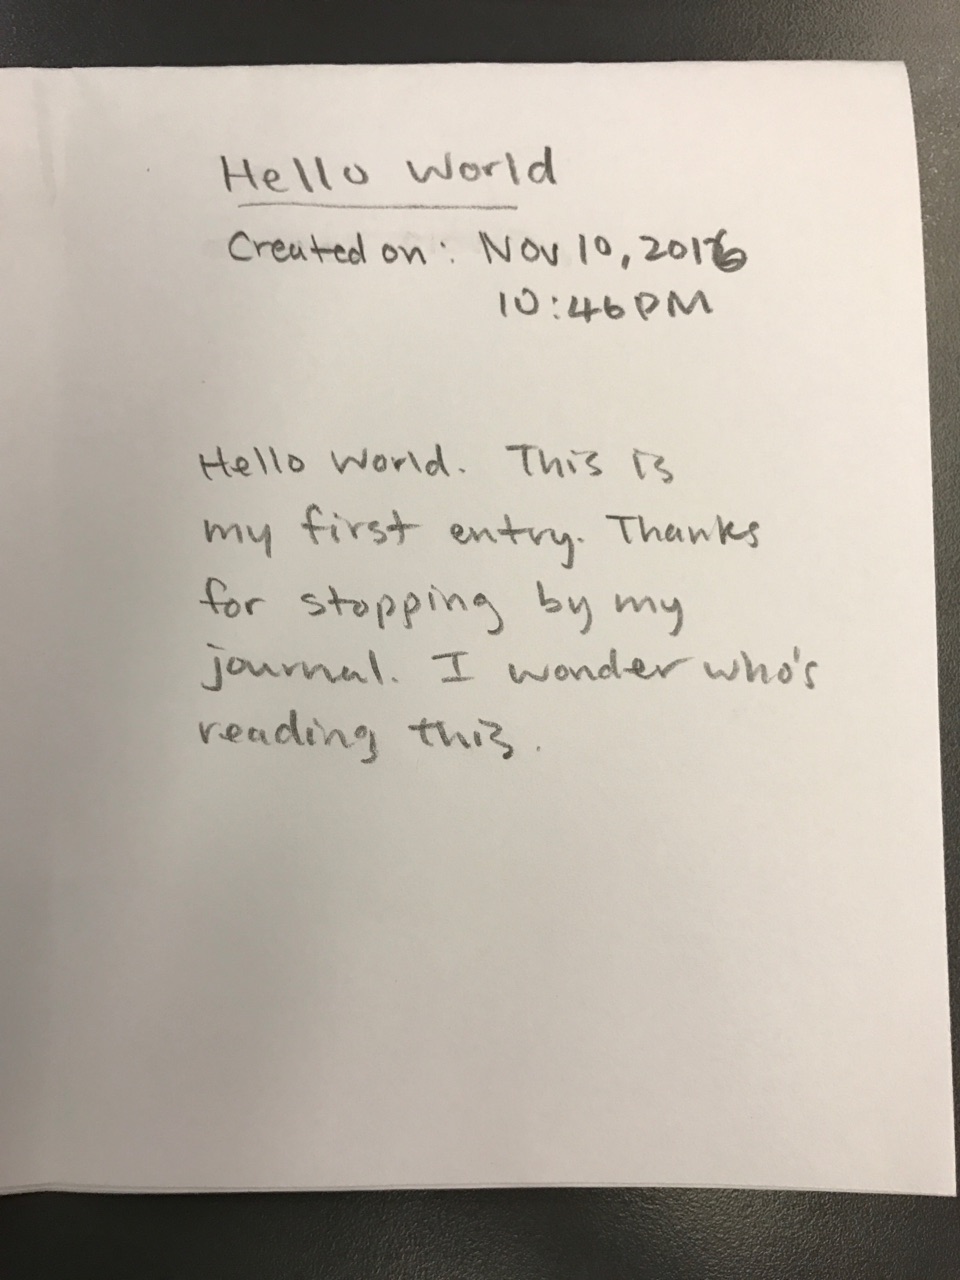 Hello World
Created on: Nov 10, 2016
10:46PM
Hello World. This is
my first entry. Thanks
for stopping by my
journal. I wonder who's
reading this.